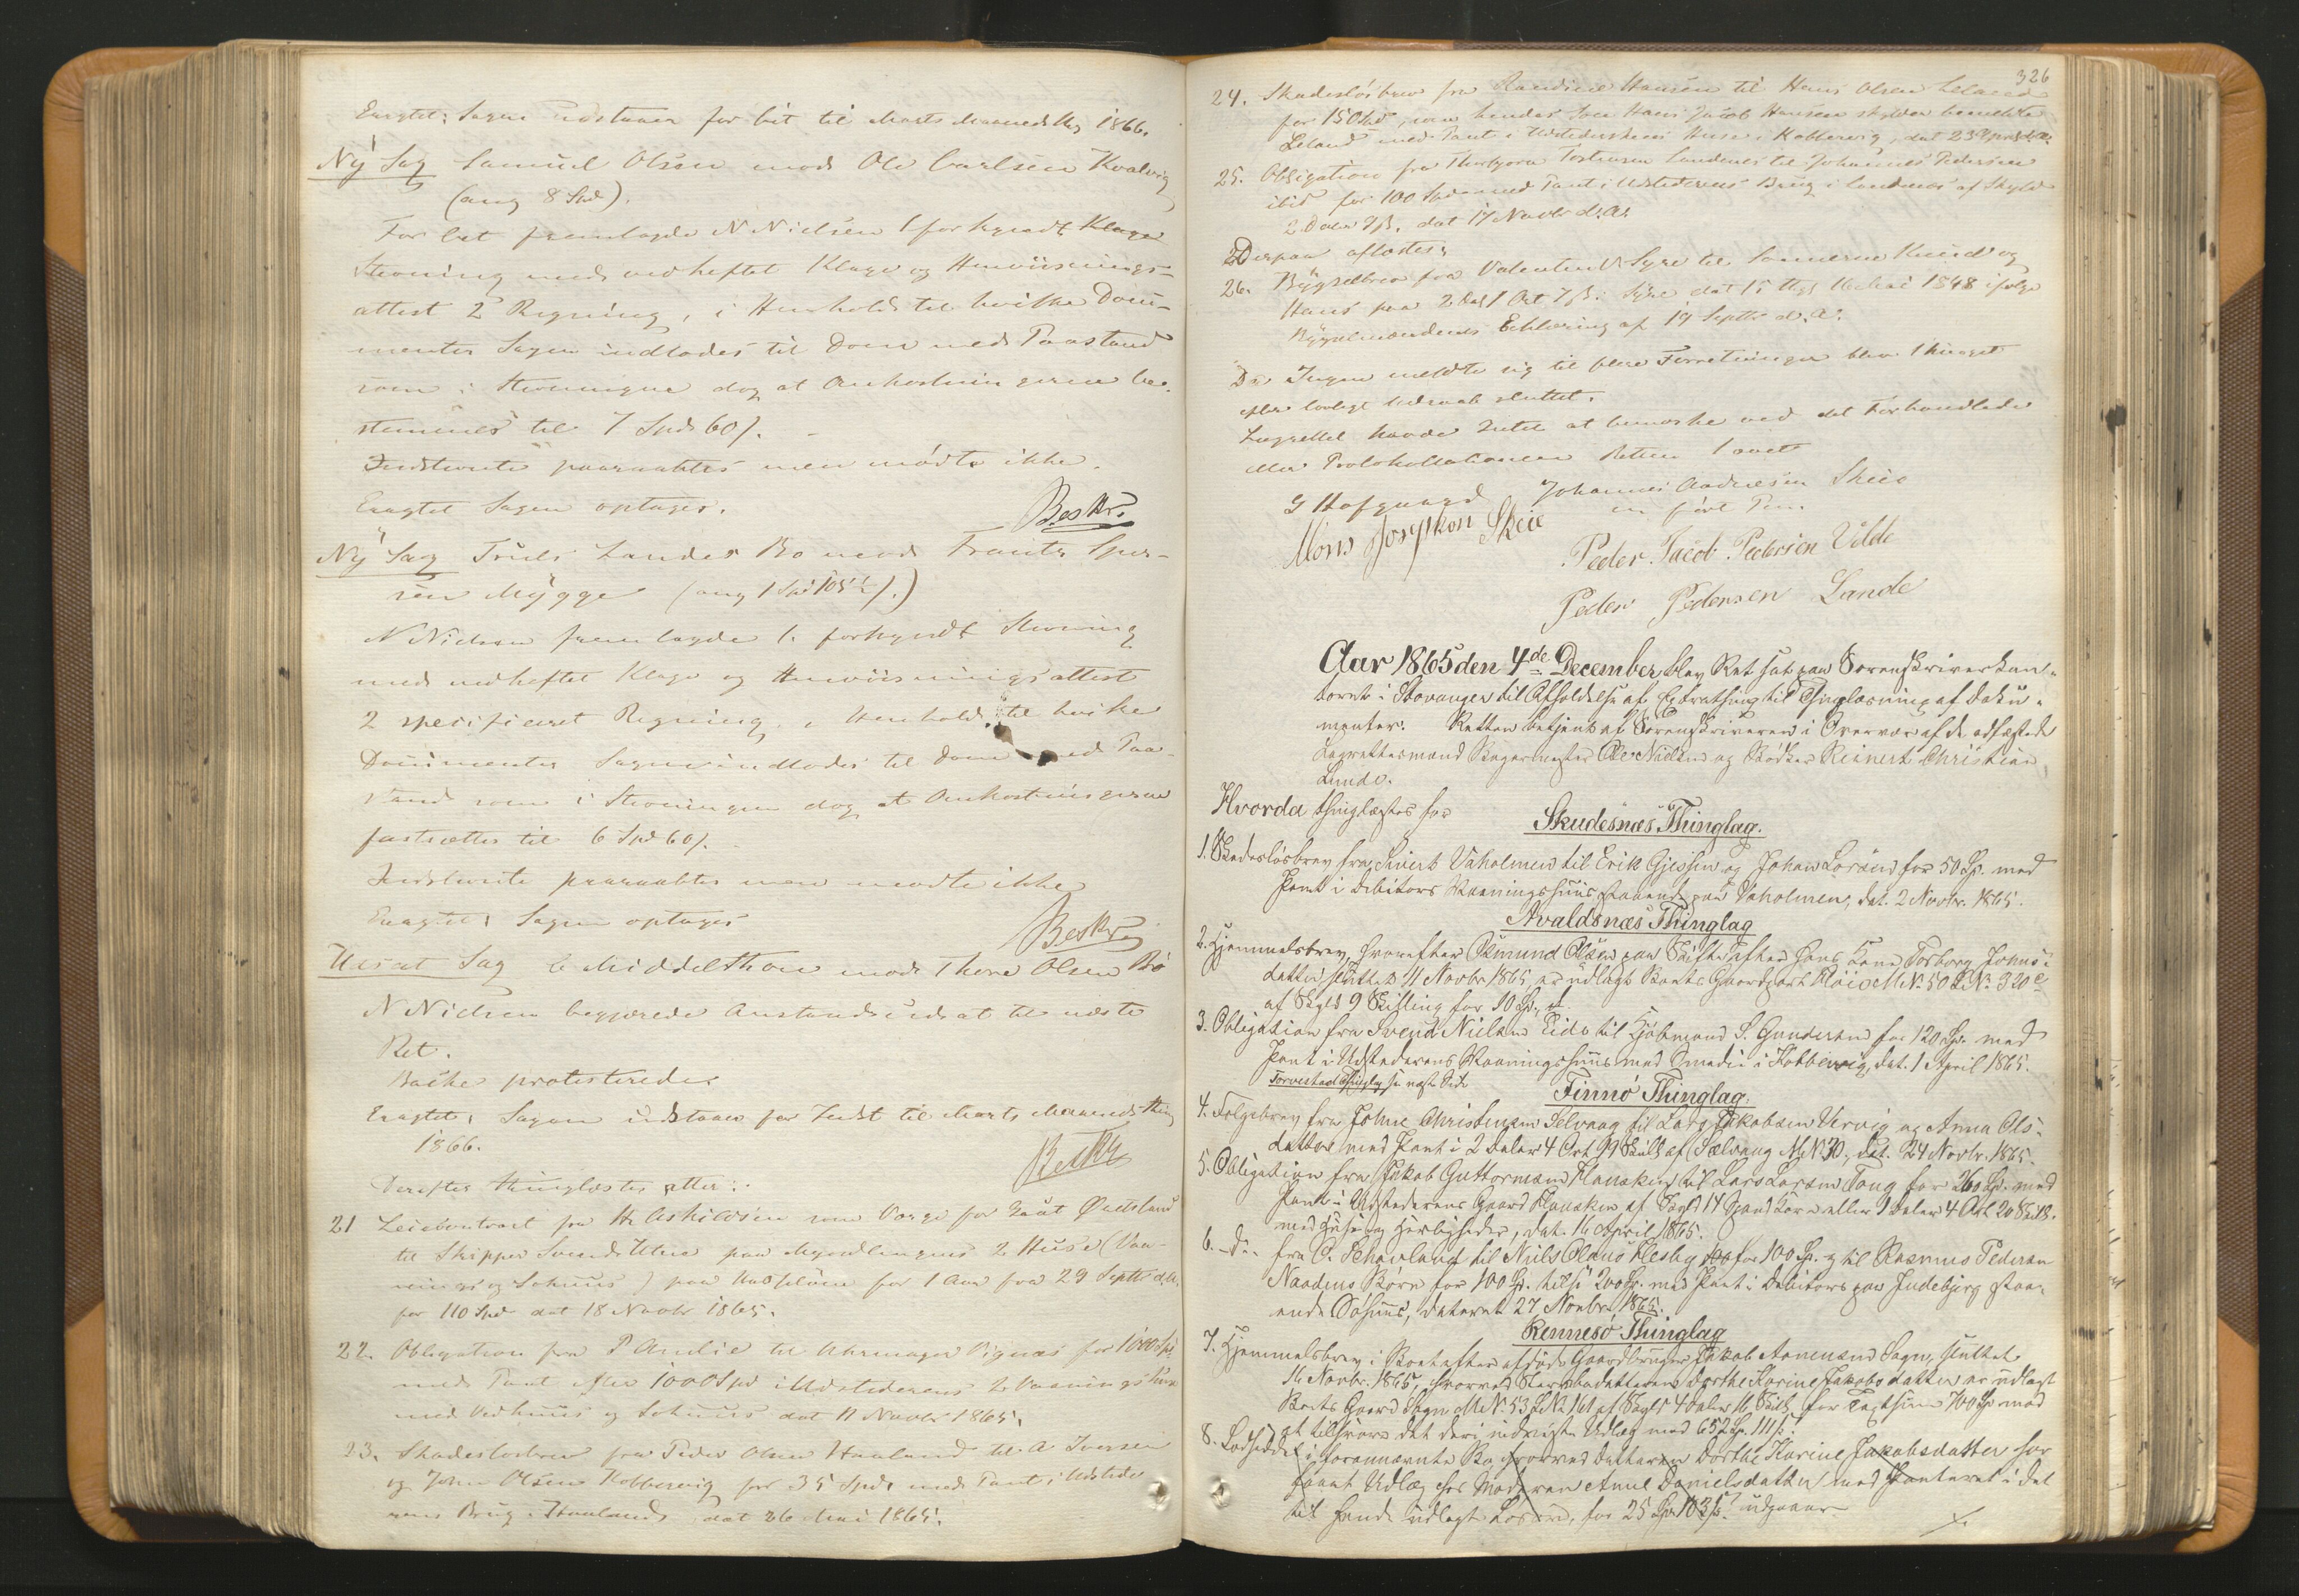 Eragtet: Sagen udstaaer for bit til Marts Maanedsthg 1866.
Ny Sag Samuel Olsen mod Ole Carlsen Kvalvig
(ang 8 Spd).
For Cit fremlagde N Nielsen 1 forkyndt Klage
Stevning med vedheftet Klage og Henviisnings-
attest 2 Regning, i Henhold til hvilke Docu-
menter Sagen indlodes til Dom med Paastand
som i Stevningen dog at Omkostningerne be-
stemmes til 7 Spd 60 s.
Indstevnte paaraabtes men mødte ikke.
Eragtet Sagen optages.
Beskr.
Ny Sag Truls Landes Bo mod Frants
sen Mygge (ang 1 Spd 105½ s.)
N Nielsen fremlagde 1. forkyndt Stevning
med vedheftet Klage og Henviisningsattest
2 specificeret Regning, i Henhold til hvilke
Documenter Sagen indlodes til Dom med Paa-
stand som i Stevningen dog at Omkostningerne
fastsættes til 6 Spd 60 s.
Indstevnte paaraabtes men mødte ikke
Eragtet: Sagen optages
Beskr.
Udsat Sag C Middelthon mod Thore Olsen Bø
N Nielsen begjærede Anstand udsat til næste
Ret.
Bache protesterede
Eragtet: Sagen udstaaer for Indst til Marts Maanedsthing
1866.
Beskr
Derefter thinglæstes atter:
21 Leiecontract fra H. Askildsen som Værge for Qvetsland
til Skipper Svend paa Myndlingens 2 Huse (Vaa-
nings og Søhuus) paa for 1 Aar fra 29 Septbr d.A.
for 110 Spd dat 18 Novbr 1865.
22. Obligation fra P Amlie til Uhrmager Vignæs for 1000 Spd
med Pant efter 1000 Spd i Udstederens 2 Vaaningshuse
med Vedhuus og Søhuus dat 11 Novbr 1865.
23. Skadesløsbrev fra Peder Olsen Haaland til A Iversen
og John Olsen Kobbervig for 35 Spd med Pant i Udstede
rens Brug i Haaland, dat 26 Mai 1865.
326
24. Skadesløsbrev fra Randine Hansen til Hans Olsen Leland
for 150 Spd, som hendes Søn Hans Jacob Hansen skylder bemeldte
Leland med Pant i Udstederskens Huse i Kobbervig, dat 23
25. Obligation fra Thorbjørn Tostensen Sandenes til Johannes Pedersen
ibid for 100 Spd med Pant i Udstederens Brug i Sandenes af Skyld
2 Daler 9 ß. dat 17 Novbr d.A.
Derpaa aflæstes:
26. Bygselbrev fra Valentin V Syre til Sønnerne Knud og
Hans paa 2 Dal 1 Ort 7 ß. i Syre dat 15 thgl Mai 1848 ifølge
Bygselmændenes Erklæring af 19 Septbr d.A.
Da Ingen meldte sig til flere Forretninger blev Thinget
efter lovligt Udraab sluttet.
Lagrettet havde Intet at bemærke ved det Forhandlede
eller Protokollationen Retten hævet
G Hofgaard Johannes Andresen Skeie
m ført Pen.
Mons Josephson Skeie
Peder Jacob Pedersen Vilde
Peder Pedersen Lande
Aar 1865 den 4de December blev Ret sat paa Sorenskriverkon-
toret i Stavanger til Afholdelse af Extrathing til Thinglæsning af Doku-
menter. Retten betjent af Sorenskriveren i Overvær af de edfæstede
Lagrettesmænd Bagermester Ole Nielsen og Bødker Reinert Christian
Lunde.
Hvorda thinglæstes for
Skudesnæs Thinglag.
1. Skadesløsbrev fra Sivert Vaholmen til Erik Gjessen og Johan Larsen for 50 Sp. med
Pant i Debitors Vaaningshuus staaende paa Vaholmen, dat. 2 Novbr. 1865.
Avaldsnæs Thinglag
2. Hjemmelsbrev, hvorefter Aamund Olsen paa Skifte efter hans Kone Torborg Johns-
datter sluttet 11 Novbr 1865, er udlagt Boets Gaardpart Røie MNo 50 LNo 320c
af Skyld 9 Skilling for 90 Sp.
3. Obligation fra Svend Nielsen Eide til Kjøbmand S. Gundersen for 120 Sp. med
Pant i Udstederens Vaaningshuus med Smedie i Kobbervig, dat. 1 April 1865.
Torvestad Thinglag se næste Side
Finnø Thinglag.
4. Følgebrev fra Johne Christensen Selvaag til Lars Jakobsen Urvig og Anna Ols-
datter med Pant i 2 Daler 4 Ort 19 Skill af Selvaag MNo 30, dat. 24 Novbr. 1865.
5. Obligation fra Jakob Guttormsen Hanasken til Lars Larsen Tong for 260 Sp. med
Pant i Udstederens Gaard Hanasken af Skyld 14 Spand Korn eller 1 Daler 4 Ort 20 Skill.
med Huse og Herligheder, dat. 16 April 1865.
6. Do. fra O. Schanland til Niels Claus Flesby for 100 Sp. og til Rasmus Pedersen
Naadens Børn for 100 Sp. tils. 200 Sp. med Pant i Debitors paa Judebjerg staa-
ende Søhuus, dateret 27 Novbr 1865.
Rennesø Thinglag
7. Hjemmelsbrev i Boet efter afdøde Gaardbruger Jakob Aanensen Sagn, sluttet
16 Novbr. 1865, hvorved Stervbodatteren Dorthe Karine Jakobsdatter er udlagt
Boets Gaard Sagn MNo 53 LNo 161 af Skyld 4 Daler 16 Skill. for Taxtsum 700 Sp mod
at tilsvare det deri indviste Udlæg med 652 Sp. 111 ß.
8. Lodseddel i forannævnte Bo hvorved Datteren Dorthe Karine Jakobsdatter for
sit Udlæg hos Moderen Anne Danielsdatter med Panteret i det
til hende udlagte Løsøre, for 25 Sp. 103 ß. udgaaer